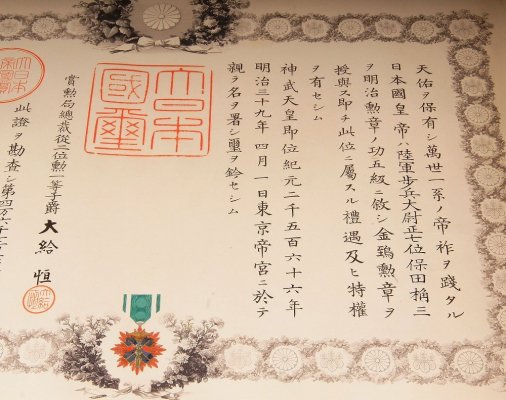 天佑ヲ保有シ萬世一系ノ帝祚ヲ踐タル
日本國皇帝ハ陸軍步兵大尉正七位保田
三
ヲ明治勲章ノ功五級ニ敘シ金鵄勲章ヲ
授與ス即チ此位ニ屬スル禮遇及ヒ特權
ヲ有セシム
神武天皇即位紀元二千五百六十六年
明治三十九年四月一日東京帝宮ニ於テ
親ラ名ヲ署シ璽ヲ鈐セシム
大日本
國璽
賞勲局總裁從三位勲一等子爵大給恒
此證ヲ勘査シ第四万六千